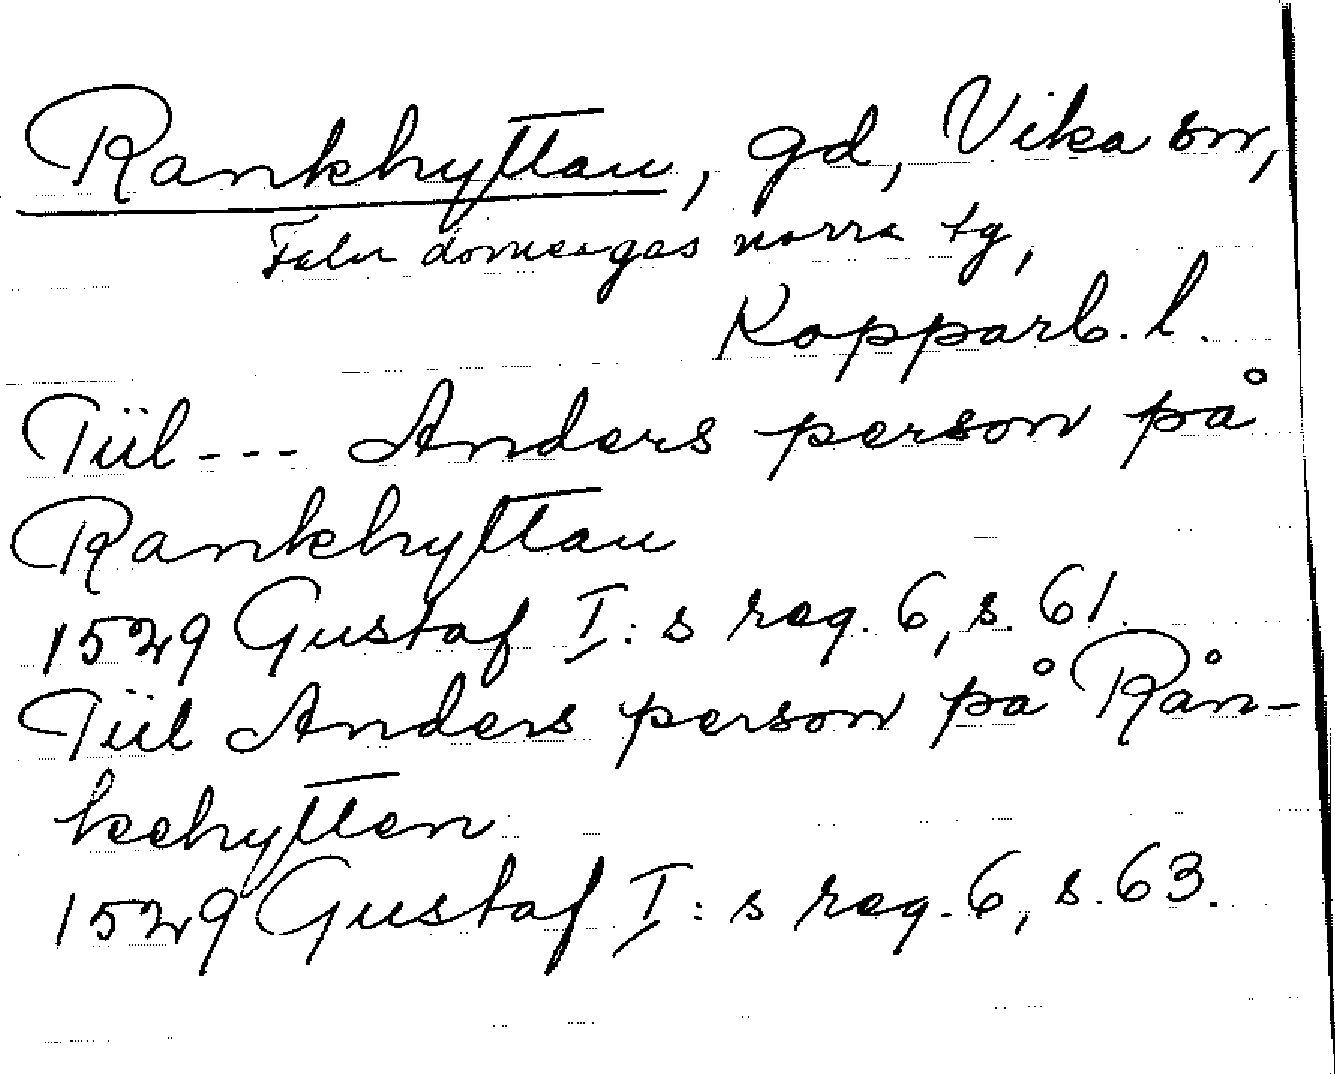 Rankhyttan, gd, Vika sn,
Falu domsagas norra tg,
Kopparb. l.
Tiil --- Anders person på
Rankhyttan
1529 Gustaf I:s reg. 6, s. 61.
Tiil Anders person på Rån-
kehytten
1529 Gustaf I:s reg. 6, s. 63.